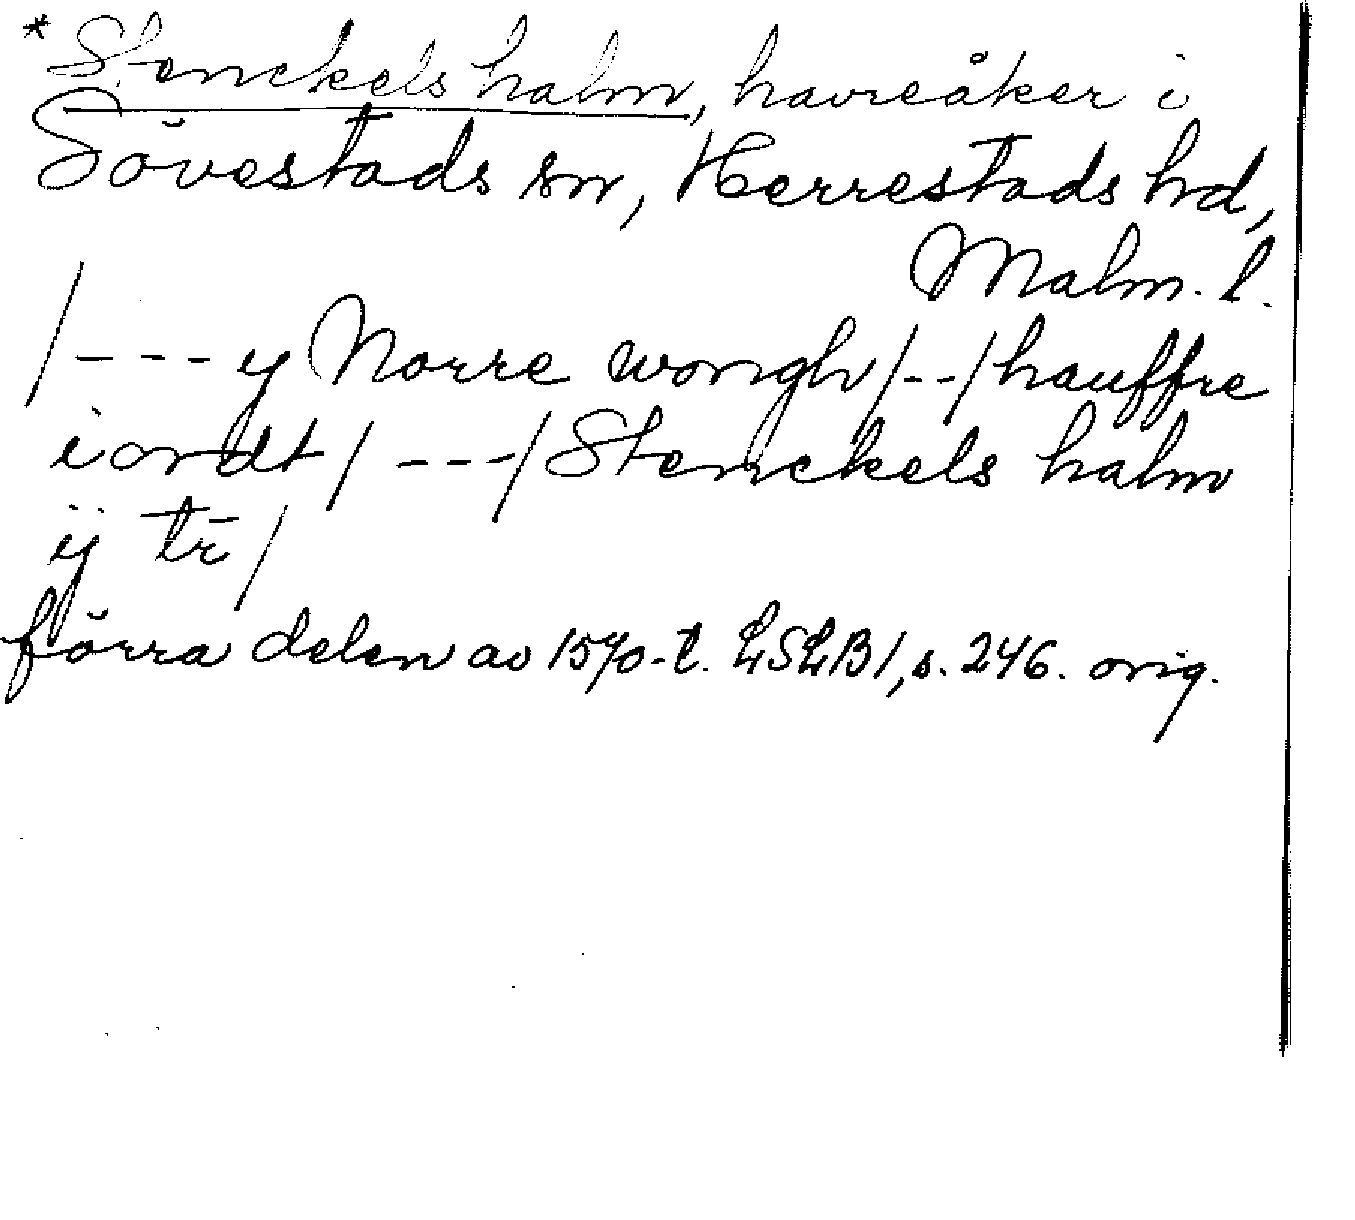 *Stenckels halm, havreåker i
Sövestads sn, Herrestads hd,
Malm. l.
/---y Norre wongh/--/hauffre
iordt/ ---/Stenckels halm
ij tr̄/
förra delen av 1570-t. LSLB1, s. 246. orig.